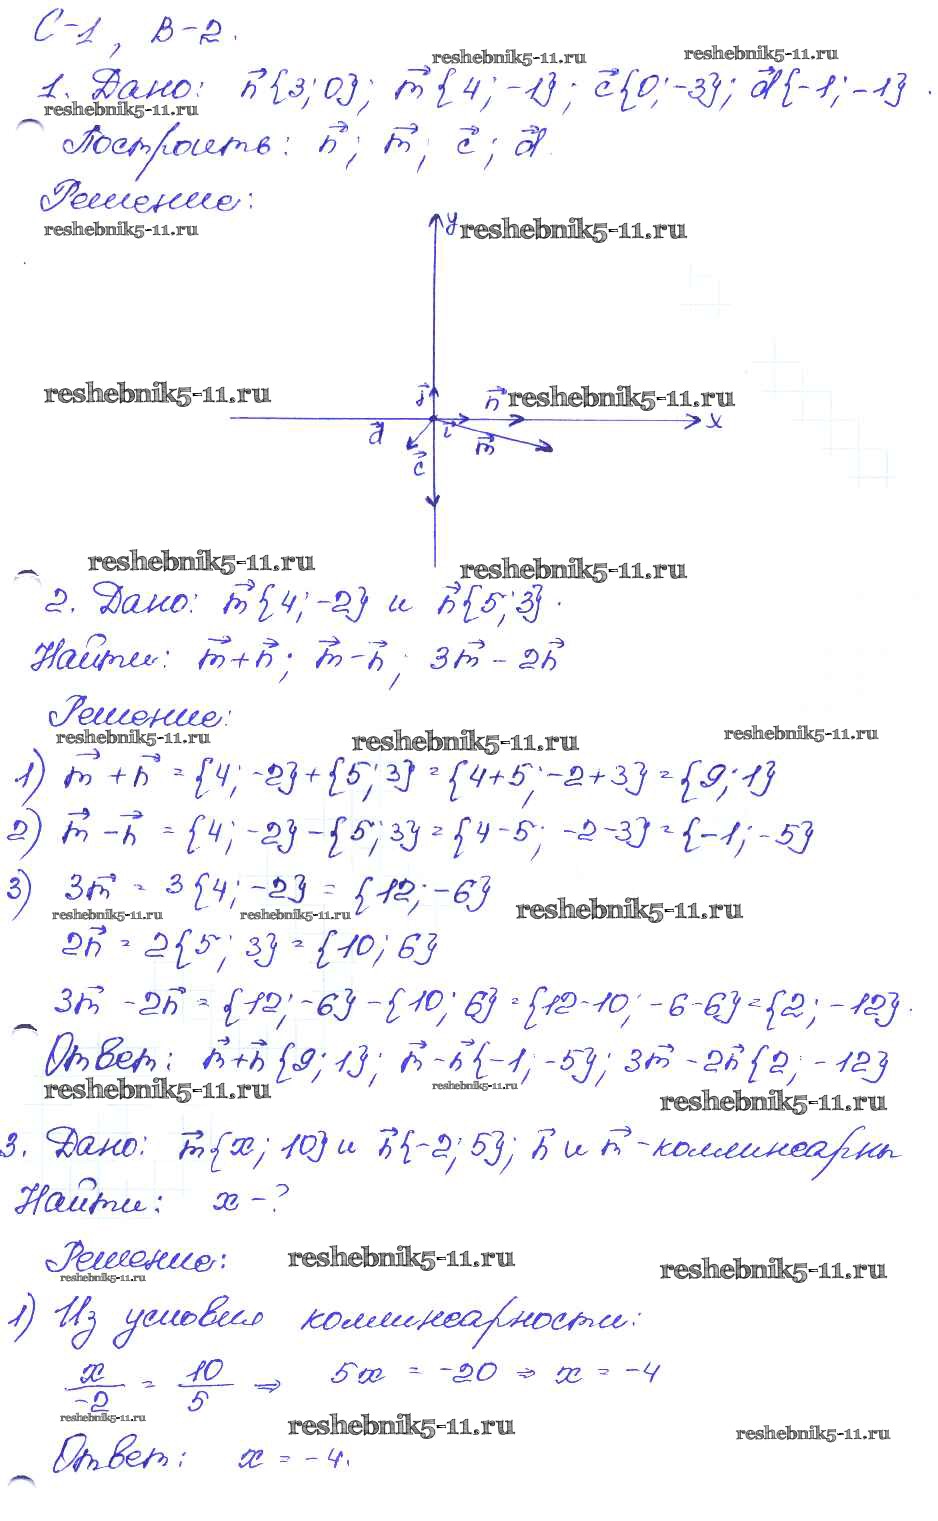 С-1, В-2.
reshebnik5-11.ru reshebnik5-11.ru
1. Дано: n⃗{3; 0}; m⃗{4; -1}; c⃗{0; -3}; d⃗{-1; -1}.
reshebnik5-11.ru
Построить: n⃗; m⃗; c⃗; d⃗.
Решение:
reshebnik5-11.ru y reshebnik5-11.ru
reshebnik5-11.ru j⃗ n⃗ reshebnik5-11.ru
d⃗ i⃗ m⃗ x
c⃗
reshebnik5-11.ru reshebnik5-11.ru
2. Дано: m⃗{4; -2} и n⃗{5; 3}.
Найти: m⃗+n⃗; m⃗-n⃗; 3m⃗-2n⃗
Решение:
reshebnik5-11.ru reshebnik5-11.ru reshebnik5-11.ru
1) m⃗+n⃗ = {4; -2}+{5; 3} = {4+5; -2+3} = {9; 1}
2) m⃗-n⃗ = {4; -2}-{5; 3} = {4-5; -2-3} = {-1; -5}
3) 3m⃗ = 3{4; -2} = {12; -6}
reshebnik5-11.ru reshebnik5-11.ru reshebnik5-11.ru
2n⃗ = 2{5; 3} = {10; 6}
3m⃗-2n⃗ = {12; -6}-{10; 6} = {12-10; -6-6} = {2; -12}.
Ответ: m⃗+n⃗{9; 1}; m⃗-n⃗{-1; -5}; 3m⃗-2n⃗{2; -12}
reshebnik5-11.ru reshebnik5-11.ru reshebnik5-11.ru
3. Дано: m⃗{x; 10} и n⃗{-2; 5}; n⃗ и m⃗ - коллинеарны
Найти: x - ?
Решение:
reshebnik5-11.ru reshebnik5-11.ru reshebnik5-11.ru
1) Из условия коллинеарности:
x/-2 = 10/5 ⇒ 5x = -20 ⇒ x = -4
reshebnik5-11.ru reshebnik5-11.ru reshebnik5-11.ru
Ответ: x = -4.